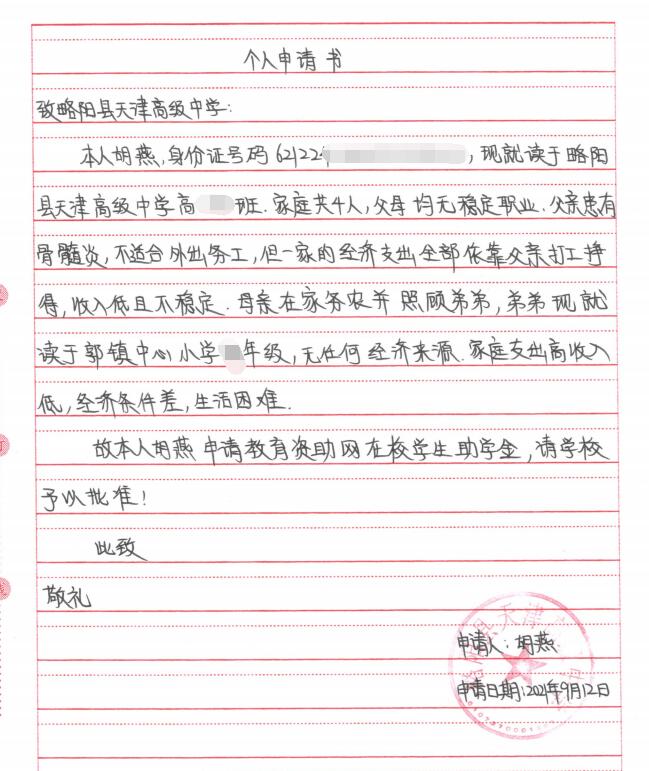 个人申请书
致略阳县天津高级中学：
本人胡燕，身份证号码62122，现就读于略阳
县天津高级中学高班．家庭共4人，父母均无稳定职业．父亲患有
骨髓炎，不适合外出务工，但一家的经济支出全部依靠父亲打工挣
得，收入低且不稳定．母亲在家务农并照顾弟弟，弟弟现就
读于郭镇中心小学年级，无任何经济来源．家庭支出高收入
低，经济条件差，生活困难．
故本人胡燕申请教育资助网在校学生助学金，请学校
予以批准！
此致
敬礼
申请人：胡燕
申请日期：2021年9月12日
略阳县天津高级中学